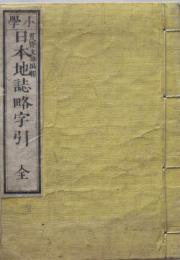 小學
日本地誌略字引 全